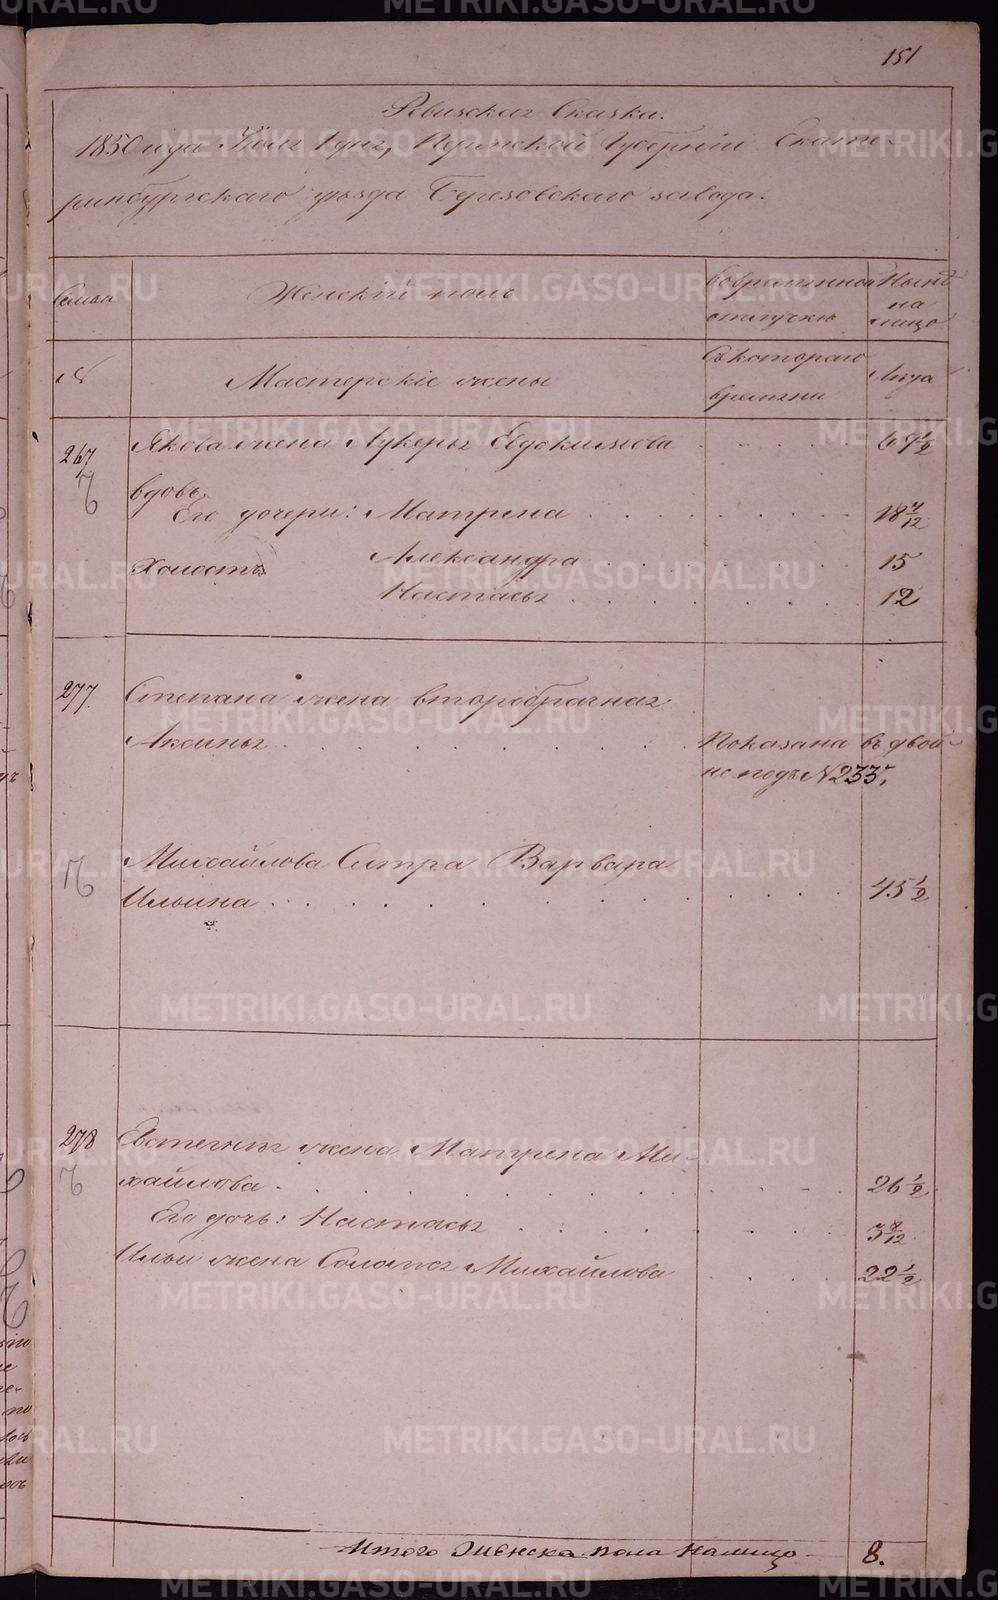 151
Ревизская Сказка.
1850 года Пермской Губернiи Екате-
ринбургскаго уѣзда Березовскаго завода.
Семьи
Женскiй полъ
во временной отлучкѣ
Нынѣ на лицо
№
Мастерскiе жены
Съ котораго времяни
Лѣта
267
Якова жена Лукерья Евдокимова . . . . 69 1/2
вдовъ
Его дочери: Матрена . . . . . . . . 18 7/12
холостъ
Александра . . . . . . . 15
Настасья . . . . . . . . 12
277
Степана жена второбрачная
Аксинья . . . . . . . . Показана въ двой-
не подъ №233,
Михайлова Сестра Варвара
Ильина . . . . . . . . . . . 45 1/2
278
Евстегнея жена Матрена Ми-
хайлова . . . . . . . . . . . 26 1/2
Его дочь: Настасья . . . . . . . 3 8/12
Ильи жена Соломея Михайлова . . . . 22 1/2
Итого Женска пола налицо 8.
METRIKI.GASO-URAL.RU